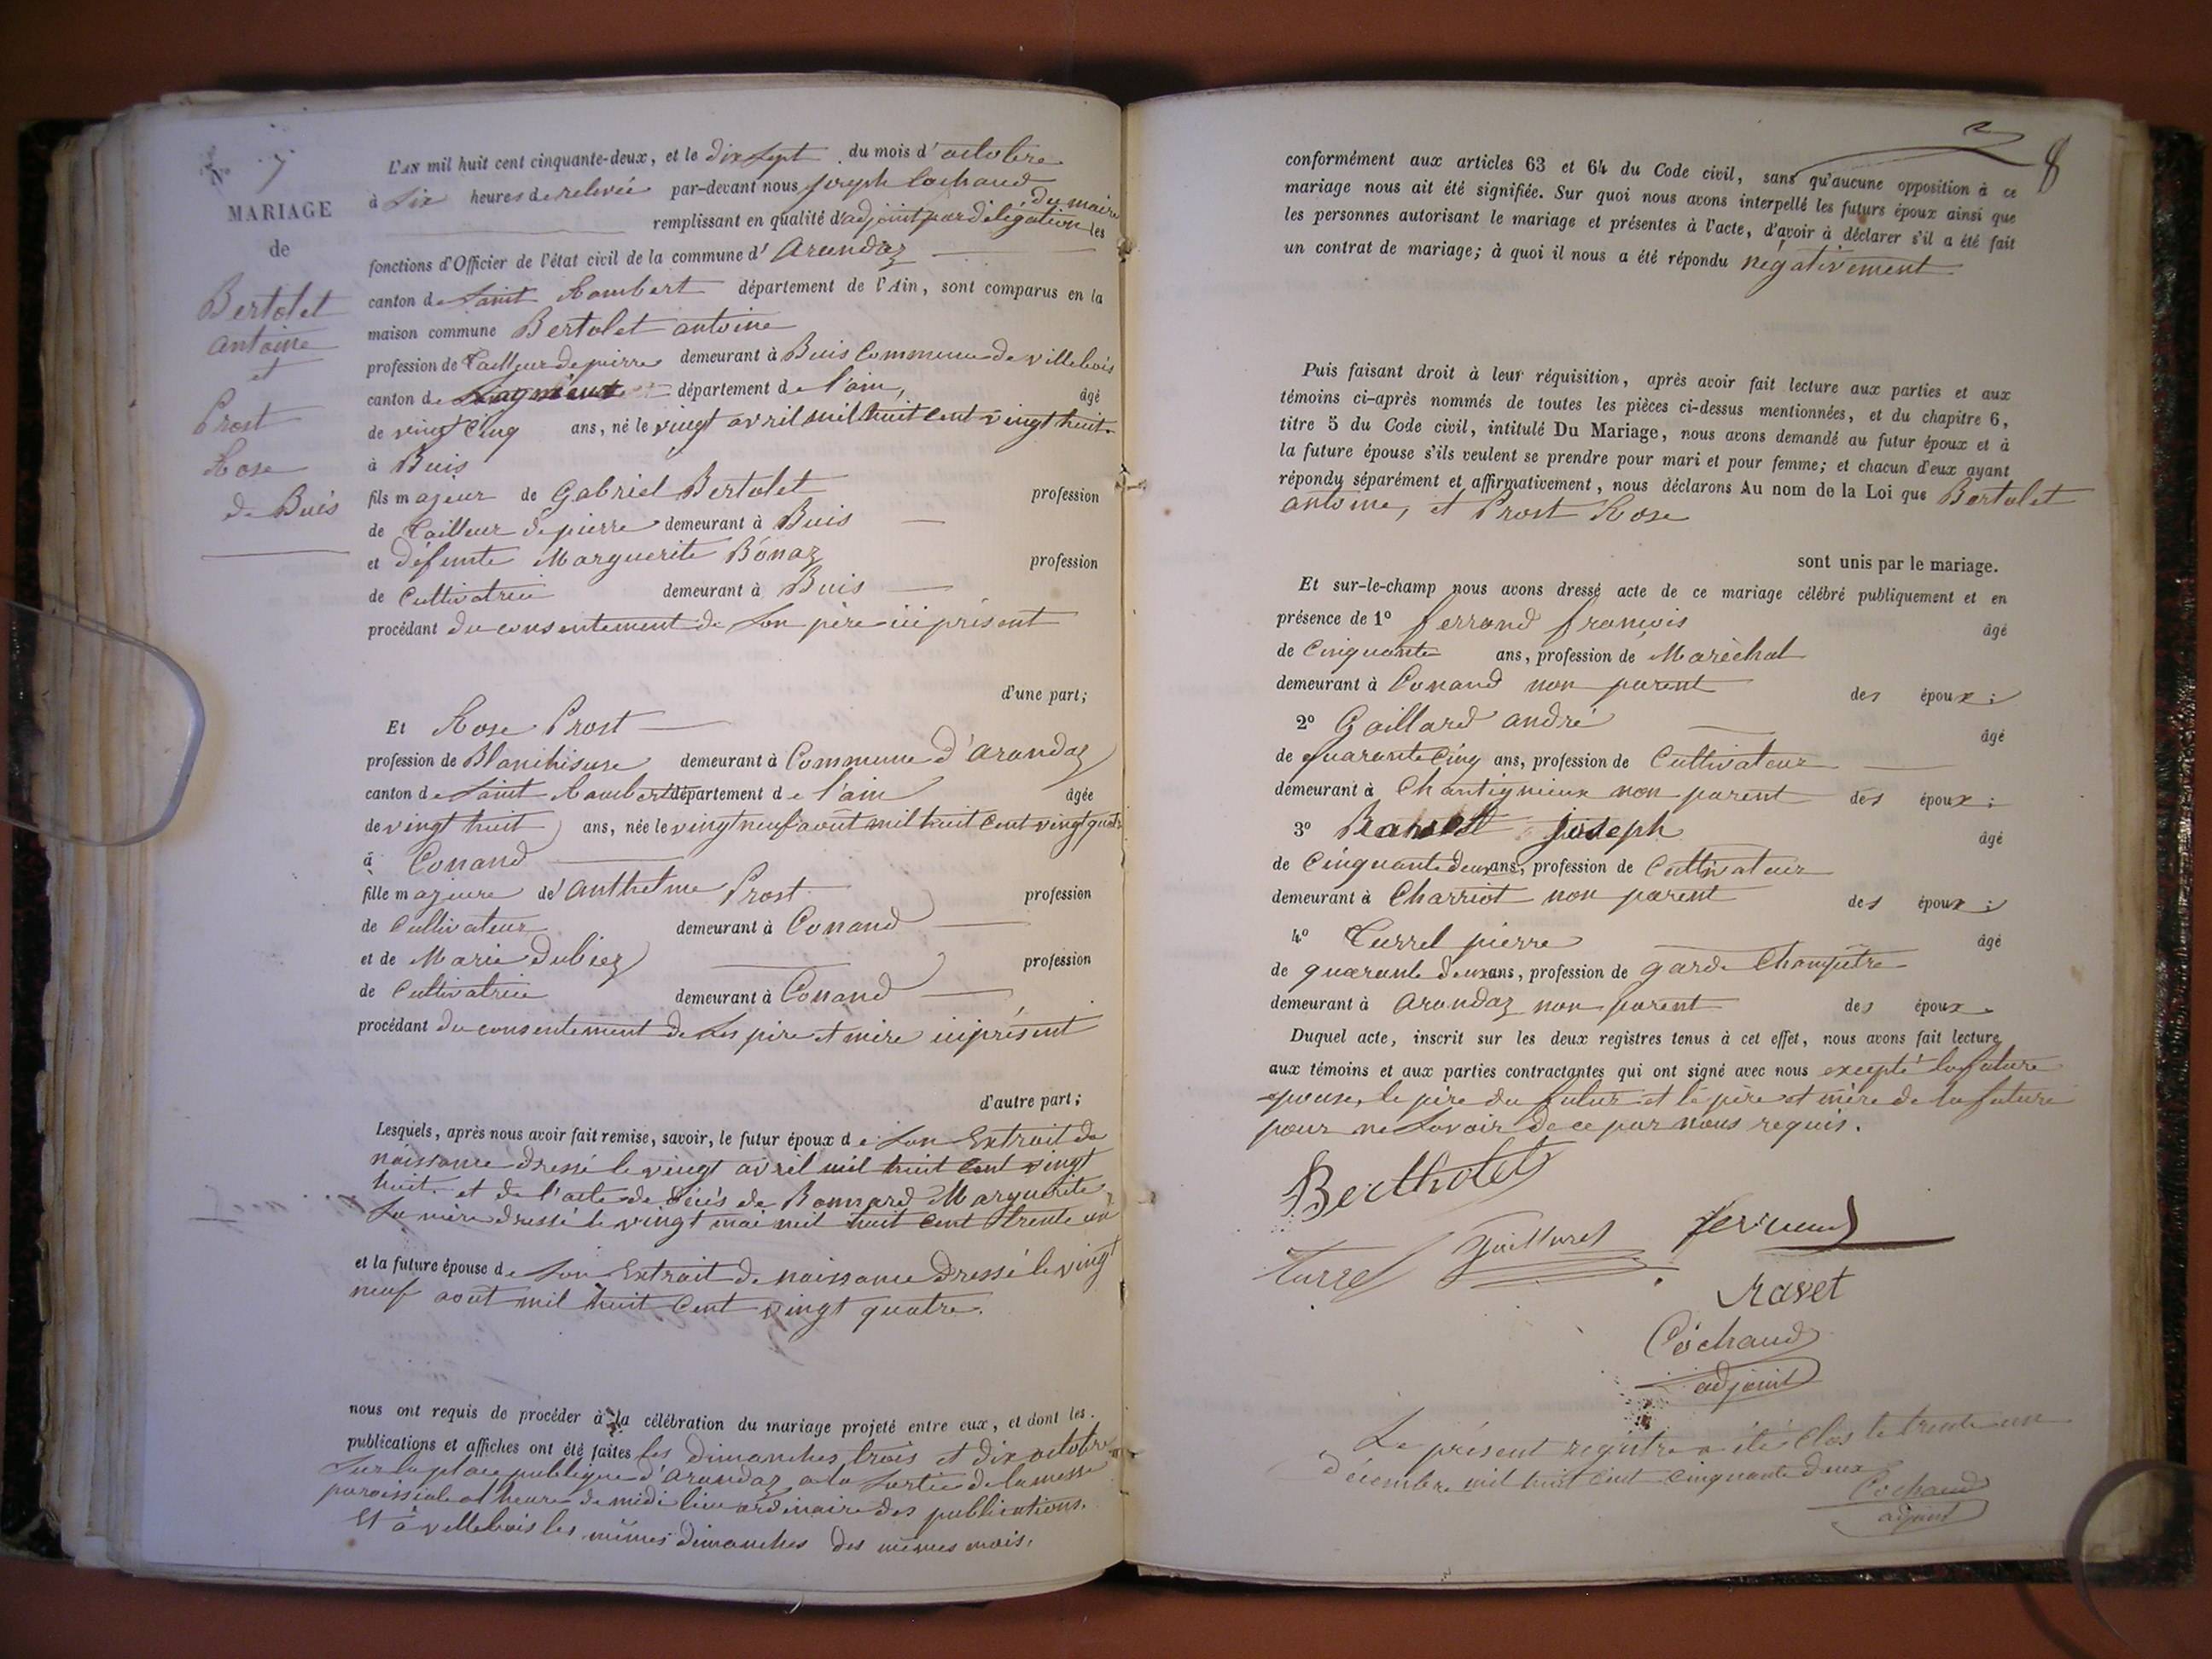 N° 7
MARIAGE
de
Bertolet
antoine
et
Prost
Rose
de Buis
L'AN mil huit cent cinquante-deux, et le dix sept du mois d'octobre
à six heures de relevée par-devant nous joseph Cochaud
remplissant en qualité d'adjoint par délégation du maire les
fonctions d'Officier de l'état civil de la commune d'Arandaz
canton de Saint Rambert département de l'Ain, sont comparus en la
maison commune Bertolet antoine
profession de tailleur de pierre demeurant à Buis Commune de villebois
canton de Lagnieux département de l'ain, âgé
de vingt Cinq ans, né le vingt avril mil huit cent vingt huit.
à Buis
fils majeur de Gabriel Bertolet profession
de tailleur de pierre demeurant à Buis
et défunte Marguerite Bonaz profession
de Cultivatrice demeurant à Buis
procédant du consentement de son père ici présent
d'une part;
Et Rose Prost
profession de Blanchiseuse demeurant à Commune d'Arandaz
canton de Saint Rambert département de l'ain âgée
de vingt huit ans, née le vingt neuf aout mil huit Cent vingt quatre
à Conand
fille majeure de Anthelme Prost profession
de Cultivateur demeurant à Conand
et de Marie Dubiez profession
de Cultivatrice demeurant à Conand
procédant du consentement de ses père et mère ici présent
d'autre part;
Lesquels, après nous avoir fait remise, savoir, le futur époux de son Extrait de
naissance dressé le vingt avril mil huit Cent vingt
huit. et de l'acte de décès de Bonnard Marguerite
sa mère dressé le vingt mai mil huit Cent trente un
et la future épouse de son Extrait de naissance dressé le vingt
neuf aout mil huit Cent vingt quatre.
nous ont requis de procéder à la célébration du mariage projeté entre eux, et dont les
publications et affiches ont été faites les dimanches trois et dix octobre
sur la place publique d'Arandaz a la sortie de la messe
paroissiale et heure de midi lieu ordinaire des publications.
Et à villebois les mêmes dimanches des mêmes mois.
8
conformément aux articles 63 et 64 du Code civil, sans qu'aucune opposition à ce
mariage nous ait été signifiée. Sur quoi nous avons interpellé les futurs époux ainsi que
les personnes autorisant le mariage et présentes à l'acte, d'avoir à déclarer s'il a été fait
un contrat de mariage; à quoi il nous a été répondu négativement
Puis faisant droit à leur réquisition, après avoir fait lecture aux parties et aux
témoins ci-après nommés de toutes les pièces ci-dessus mentionnées, et du chapitre 6,
titre 5 du Code civil, intitulé Du Mariage, nous avons demandé au futur époux et à
la future épouse s'ils veulent se prendre pour mari et pour femme; et chacun d'eux ayant
répondu séparément et affirmativement, nous déclarons Au nom de la Loi que Bertolet
antoine, et Prost Rose
sont unis par le mariage.
Et sur-le-champ nous avons dressé acte de ce mariage célébré publiquement et en
présence de 1° ferrand françois âgé
de Cinquante ans, profession de Maréchal
demeurant à Conand non parent des époux;
2° Gaillard andré âgé
de quarante Cinq ans, profession de Cultivateur
demeurant à Chantignieux non parent des époux;
3° joseph âgé
de Cinquante deux ans, profession de Cultivateur
demeurant à Charriot non parent des époux;
4° Turrel pierre âgé
de quarante deux ans, profession de garde Champêtre
demeurant à Arandaz non parent des époux.
Duquel acte, inscrit sur les deux registres tenus à cet effet, nous avons fait lecture
aux témoins et aux parties contractantes qui ont signé avec nous excepté la future
epouse, le père du futur et le père et mère de la future
pour ne savoir de ce par nous requis.
Berthotet
Turrel Gaillard ferrand
ravet
Cochaud
adjoint
Le présent registre a été Clos le trente un
décembre mil huit Cent Cinquante deux
Cochaud
adjoint